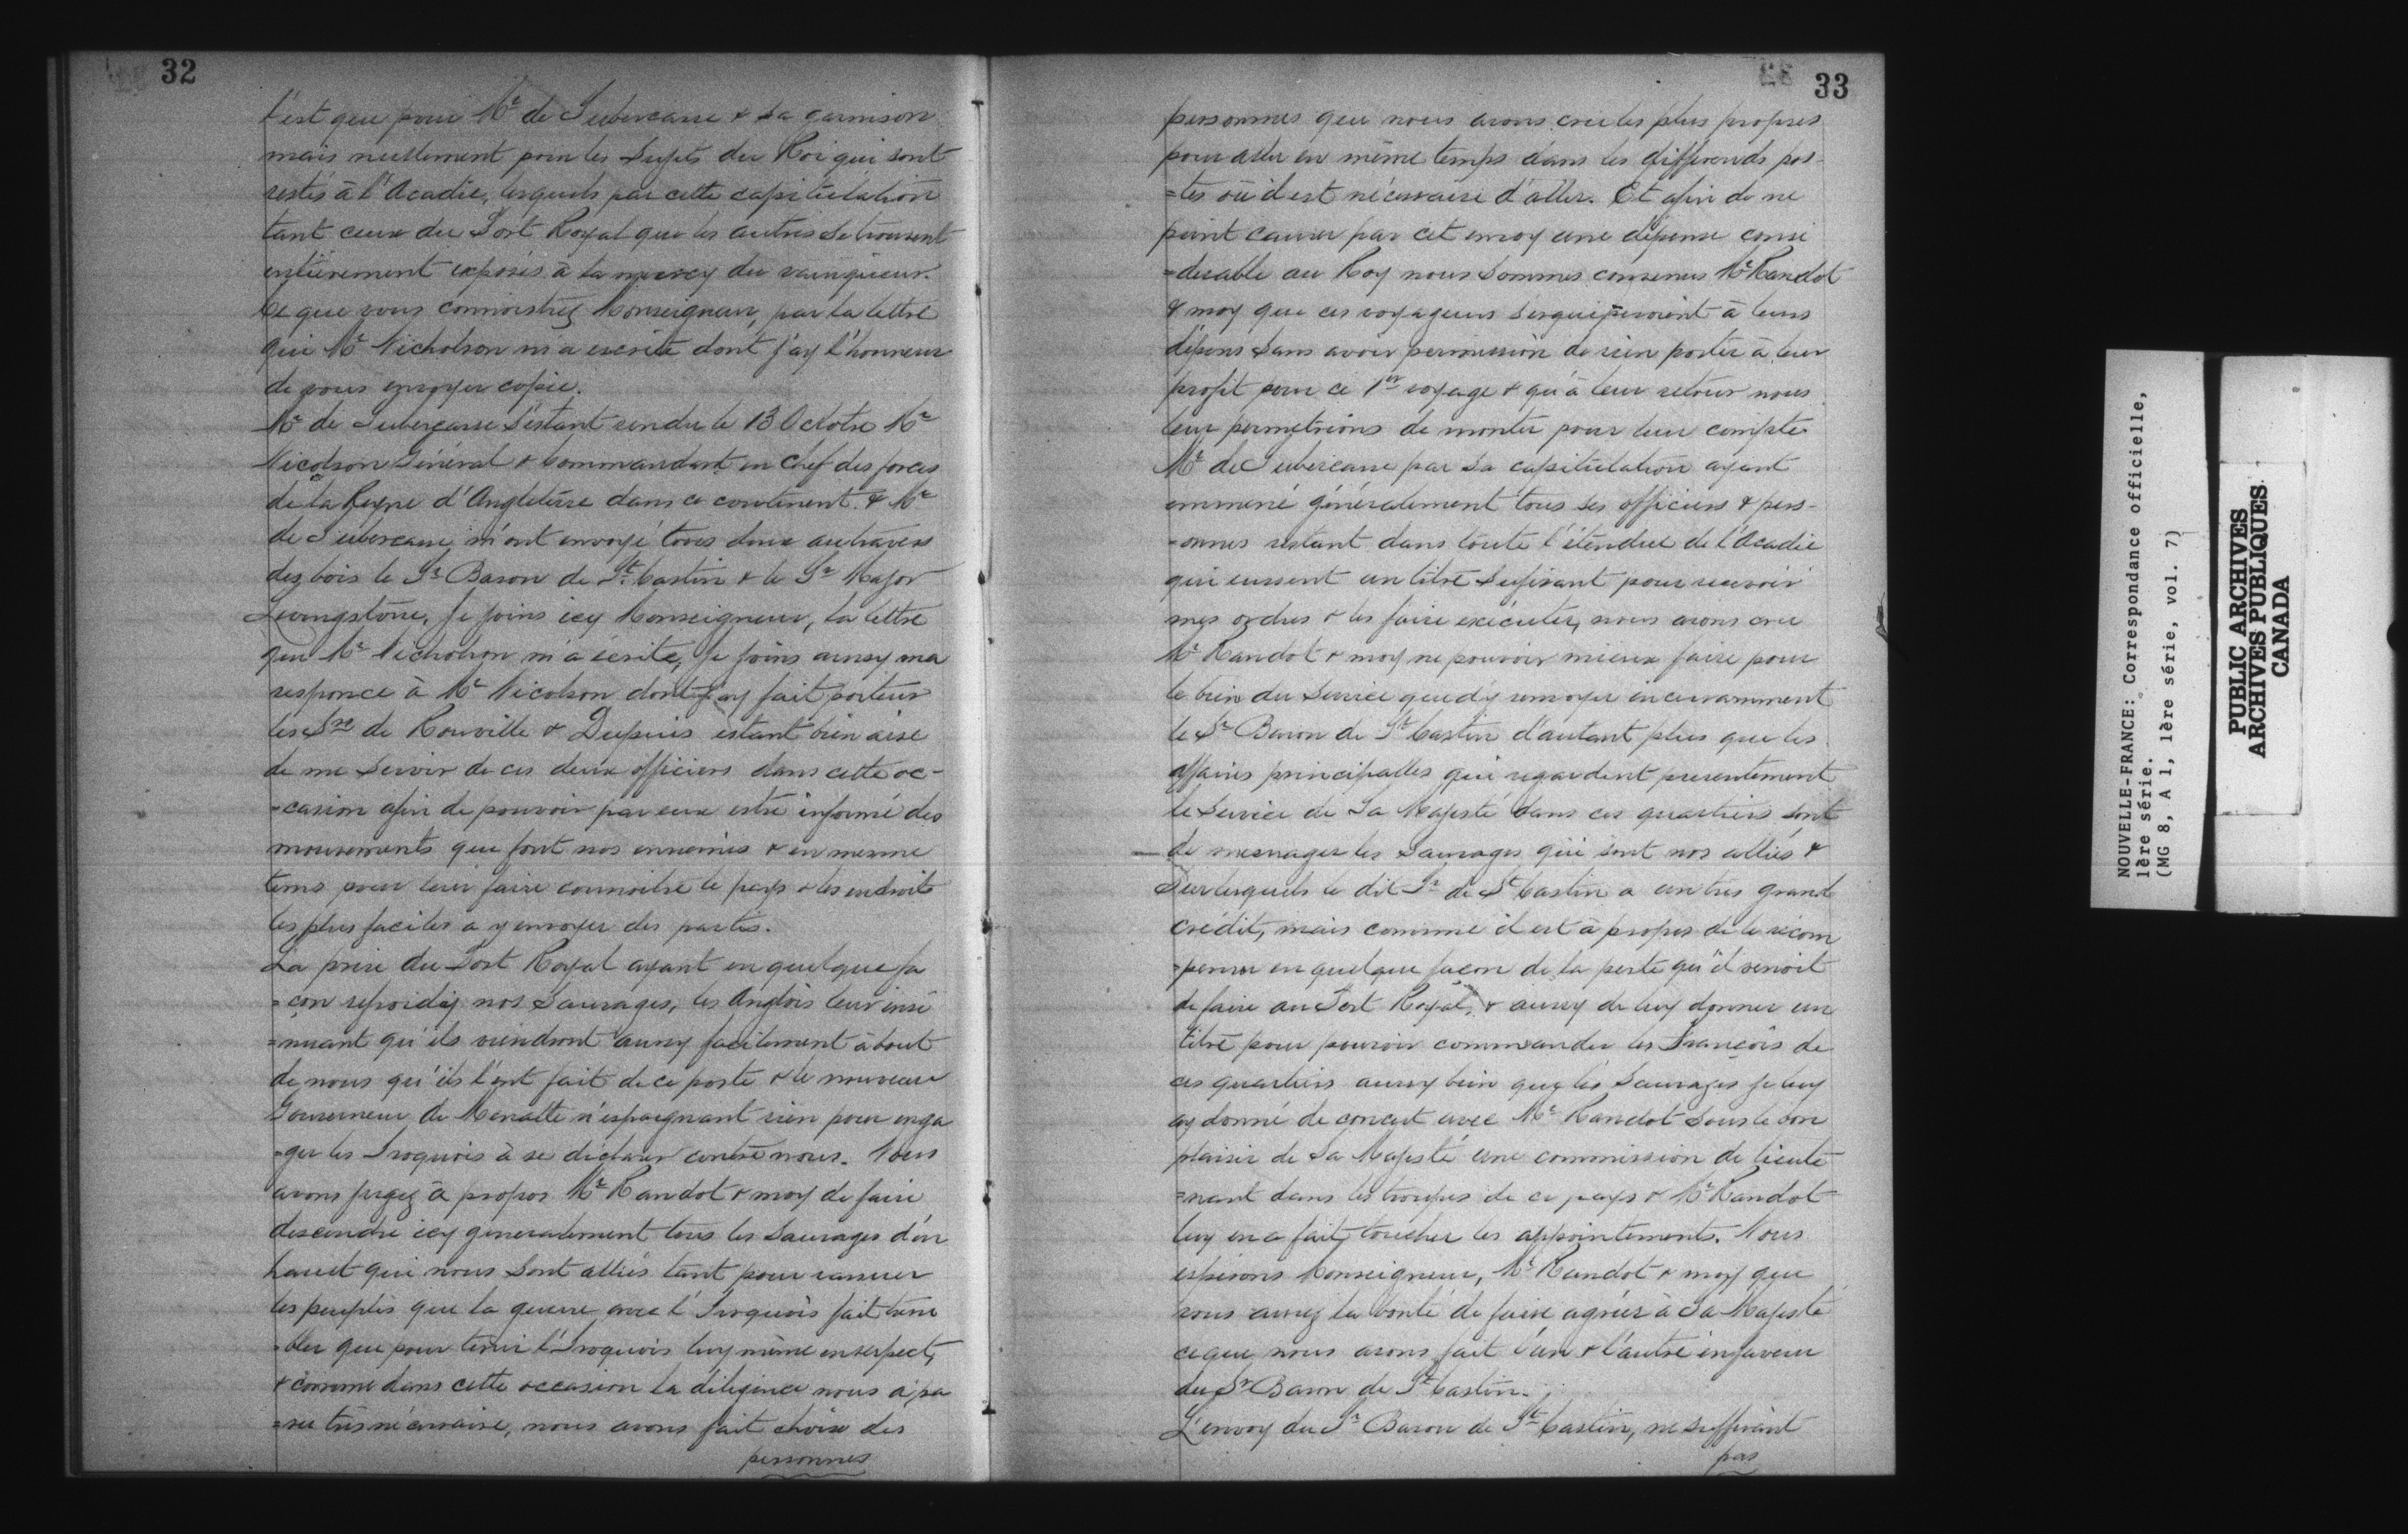 32
l'est que pour Mr de Subercasse & sa garnison
mais nullement pour les Sujets du Roi qui sont
restés à l'Acadie, lesquels par cette capitulation
tant ceux du Port Royal que les autres se trouvent
entièrement exposés à la mercy du vainqueur.
Ce que vous connoistrez Monseigneur, par la lettre
que Mr Nicholson m'a escrite dont j'ay l'honneur
de vous envoyer copie.
Mr de Subercasse s'estant rendu le 13 Octobre Mr
Nicolson Général & Commandant en Chef des forces
de la Reyne d'Angleterre dans ce continent & Mr
de Subercasse m'ont envoyé tous deux au travers
dez bois le Sr Baron de St Castin & le Sr Major
Levingstone, Je joins icy Monseigneur, la lettre
que Mr Nicholson m'a écrite, je joins aussy ma
responce à Mr Nicolson dont j'ay fait porteur
les Srs de Rouville & Dupuis estant bien aise
de me servir de ces deux officiers dans cette oc-
=casion afin de pouvoir par eux estre informé des
mouvements que font nos ennemis & en mesme
tems pour leur faire connoitre le pays & les endroits
les plus faciles a y envoyer des partis.
La prise du Port Royal ayant en quelque fa
=çon refroidy nos Sauvages, les Anglois leur insi
=nuant qu'ils viendront aussy facilement à bout
de nous qu'ils l'ont fait de ce poste & le nouveau
Gouverneur de Manatte n'espargnant rien pour enga
=ger les Iroquois à se déclarer contre nous. Nous
avons jugez à propos Mr Raudot & moy de faire
descendre icy generalement tous les Sauvages d'en
hault qui nous sont alliés tant pour rassurer
les peuples que la guerre avec l'Iroquois fait trem
=bler que pour tenir l'Iroquois luy même en respect,
& comme dans cette occasion la diligence nous a pa
=ru très nécessaire, nous avons fait choix des
personnes
33
personnes que nous avons cru les plus propres
pour aller en même temps dans les differends pos-
=tes où il est nécessaire d'aller. Et afin de ne
point causer par cet envoy une dépense consi
=derable au Roy nous sommes convenus Mr Raudot
& moy que ces voyageurs s'équiperoient à leurs
dépens sans avoir permission de rien porter à leur
profit pour ce 1er voyage & qu'à leur retour nous
leur permetrions de monter pour leur compte
Mr de Subercasse par sa capitulation ayant
emmené généralement tous ses officiers & pers-
=onnes restant dans toute l'étendue de l'Acadie
qui eussent un titre sufisant pour recevoir
mes ordres & les faire exécuter, nous avons cru
Mr Raudot & moy ne pouvoir mieux faire pour
le bien du service que d'y renvoyer incessamment
le Sr Baron de St Castin d'autant plus que les
affaires principalles qui regardent presentement
le service de Sa Majesté dans ces quartiers sont
de mesnager les Sauvages qui sont nos alliés &
sur lesquels le dit Sr de St Castin a un très grand
crédit, mais comme il est à propos de le récom
=penser en quelque façon de la perte qu'il venoit
de faire au Port Royal, & aussy de luy donner un
titre pour pouvoir commander les François de
ces quartiers aussy bien que les Sauvages je luy
ay donné de concert avec Mr Raudot sous le bon
plaisir de Sa Majesté une commission de lieute
=nant dans les troupes de ce pays & Mr Raudot
luy en a fait toucher les appointements. Nous
espérons Monseigneur, Mr Raudot & moy que
vous aurez la bonté de faire agréer à Sa Majesté
ce que nous avons fait l'un & l'autre en faveur
du Sr Baron de St Castin.
L'envoy du Sr Baron de St Castin, ne suffisant
pas
NOUVELLE-FRANCE: Correspondance officielle,
1ère série.
(MG 8, A 1, 1ère série, vol. 7)
PUBLIC ARCHIVES
ARCHIVES PUBLIQUES
CANADA